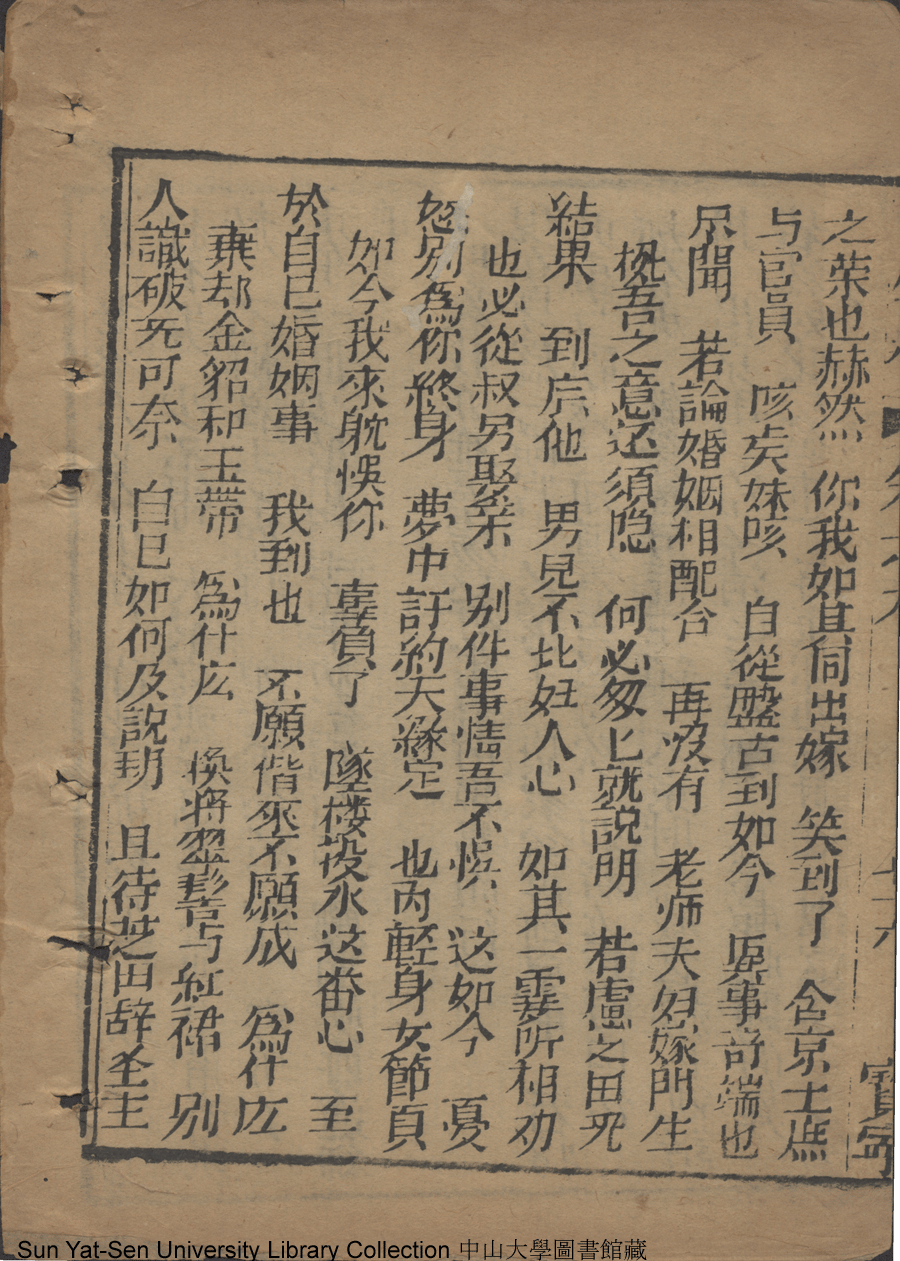 之荣也赫然　你我如其同出嫁　笑到了　合京士庶
与官員　咳矣妹咳　自從盤古到如今　異事奇端也
尽聞　若論婚姻相配合　再没有　老师夫妇嫁門生
拠吾之意还須隐　何必匆匕就説明　若慮之田死
結果　到底他　男兒不比妇人心　如其一霎听相劝
也必從叔另娶桼　别件事情吾不悞　这如今　憂
愁别為你終身　夢中訂約天縁定　也肉軽身女節貞
如今我來躭悞你　辜負了　墜楼投水这番心　至
於自已婚姻事　我到也　不願偕來不願成　為什庅
棄却金貂和玉帶　為什庅　換將翠髻与紅裙　别
人識破旡可奈　自已如何及説明　且待芝田辞圣主
寳寜
Sun Yat-Sen University Library Collection 中山大學圖書館藏